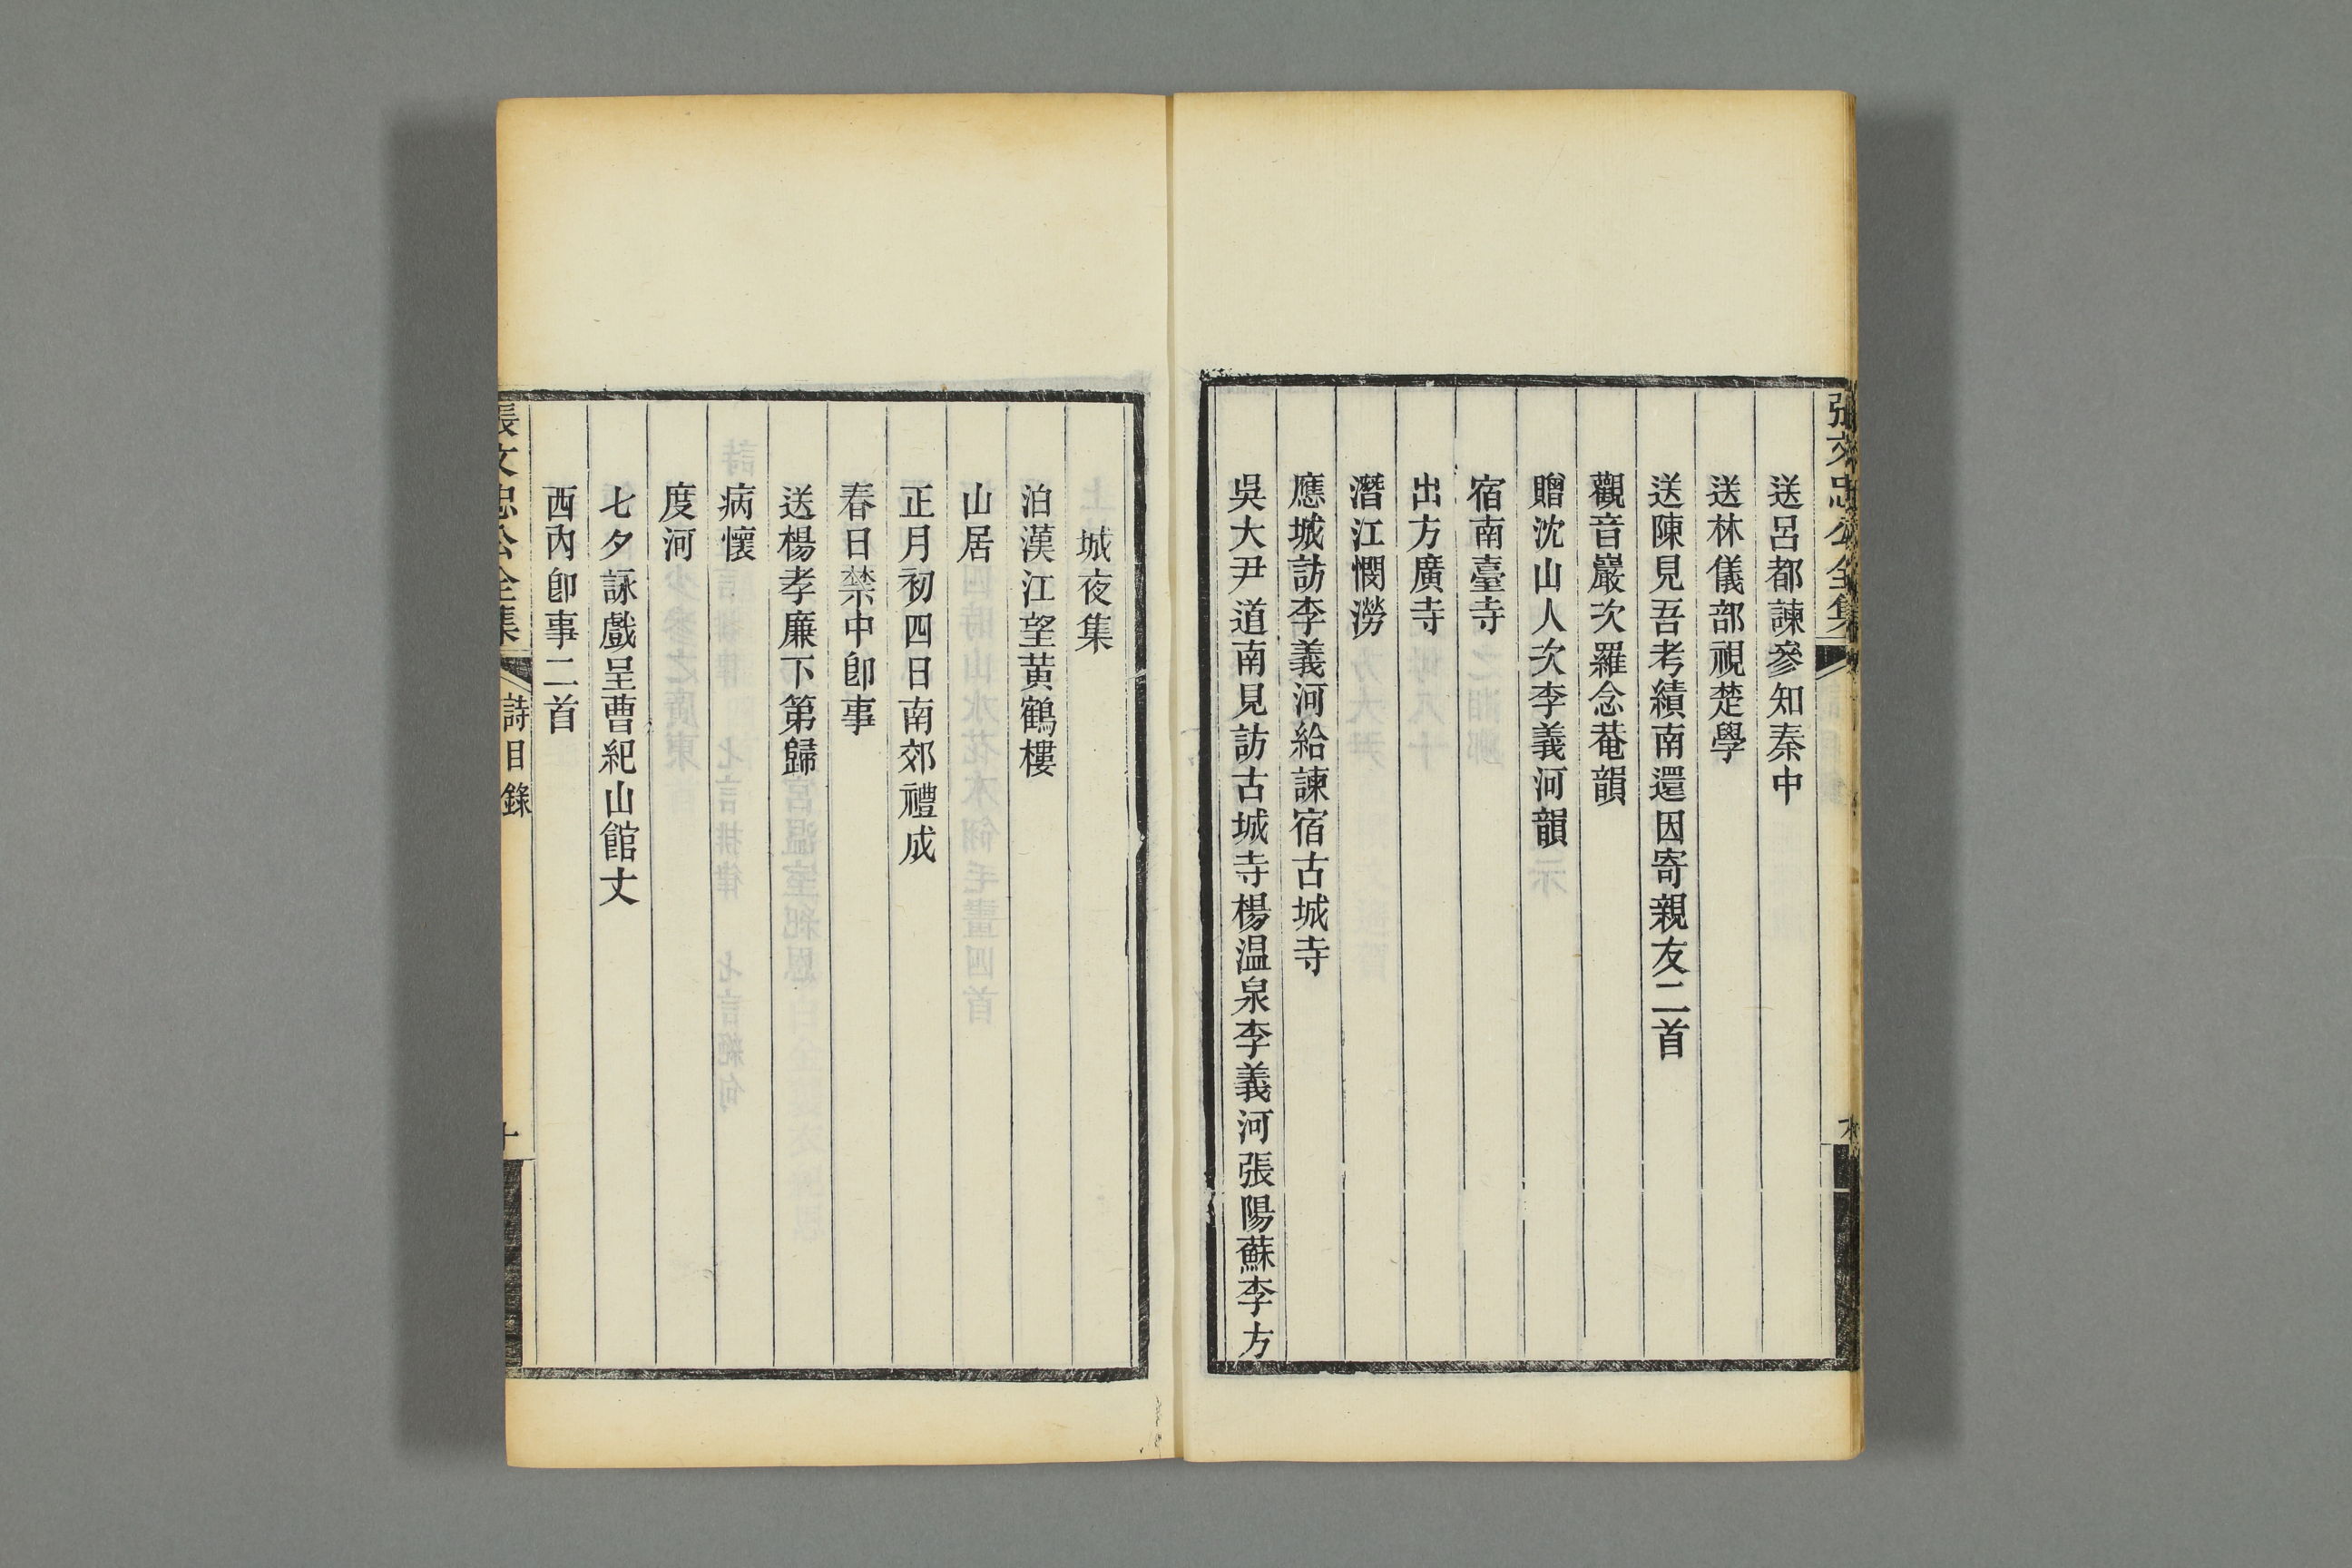 張文忠公全集
送呂都諫參知秦中
送林儀部視楚學
送陳見吾考績南還因寄親友二首
觀音巖次羅念菴韻
贈沈山人次李義河韻
宿南臺寺
出方廣寺
潛江憫澇
應城訪李義河給諫宿古城寺
吳大尹道南見訪古城寺楊溫泉李義河張陽蘇李方
城夜集
泊漢江望黄鶴樓
山居
正月初四日南郊禮成
春日禁中卽事
送楊孝廉下第歸
病懷
度河
七夕詠戲呈曹紀山館丈
西內卽事二首
張文忠公全集
詩目錄